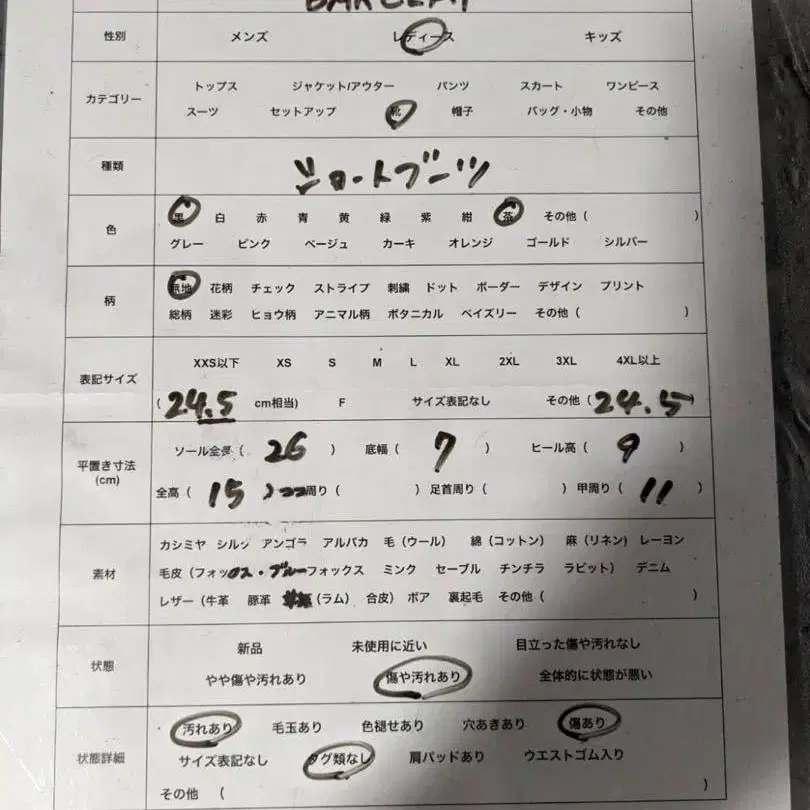 BARCLAY
性別 メンズ レディース キッズ
カテゴリー
トップス ジャケット/アウター パンツ スカート ワンピース
スーツ セットアップ 靴 帽子 バッグ・小物 その他
種類 ショートブーツ
色
黒 白 赤 青 黄 緑 紫 紺 茶 その他 ( )
グレー ピンク ベージュ カーキ オレンジ ゴールド シルバー
柄
無地 花柄 チェック ストライプ 刺繍 ドット ボーダー デザイン プリント
総柄 迷彩 ヒョウ柄 アニマル柄 ボタニカル ペイズリー その他 ( )
表記サイズ
XXS以下 XS S M L XL 2XL 3XL 4XL以上
( 24.5 cm相当) F サイズ表記なし その他 ( 24.5 )
平置き寸法
(cm)
ソール全長 ( 26 ) 底幅 ( 7 ) ヒール高 ( 9 )
全高 ( 15 ) 周り ( ) 足首周り ( ) 甲周り ( 11 )
素材
カシミヤ シルク アンゴラ アルパカ 毛 (ウール) 綿 (コットン) 麻 (リネン) レーヨン
毛皮 (フォックス・ブルーフォックス ミンク セーブル チンチラ ラビット) デニム
レザー (牛革 豚革 (ラム) 合皮) ボア 裏起毛 その他 ( )
状態
新品 未使用に近い 目立った傷や汚れなし
やや傷や汚れあり 傷や汚れあり 全体的に状態が悪い
状態詳細
汚れあり 毛玉あり 色褪せあり 穴あきあり 傷あり
サイズ表記なし タグ類なし 肩パッドあり ウエストゴム入り
その他 ( )